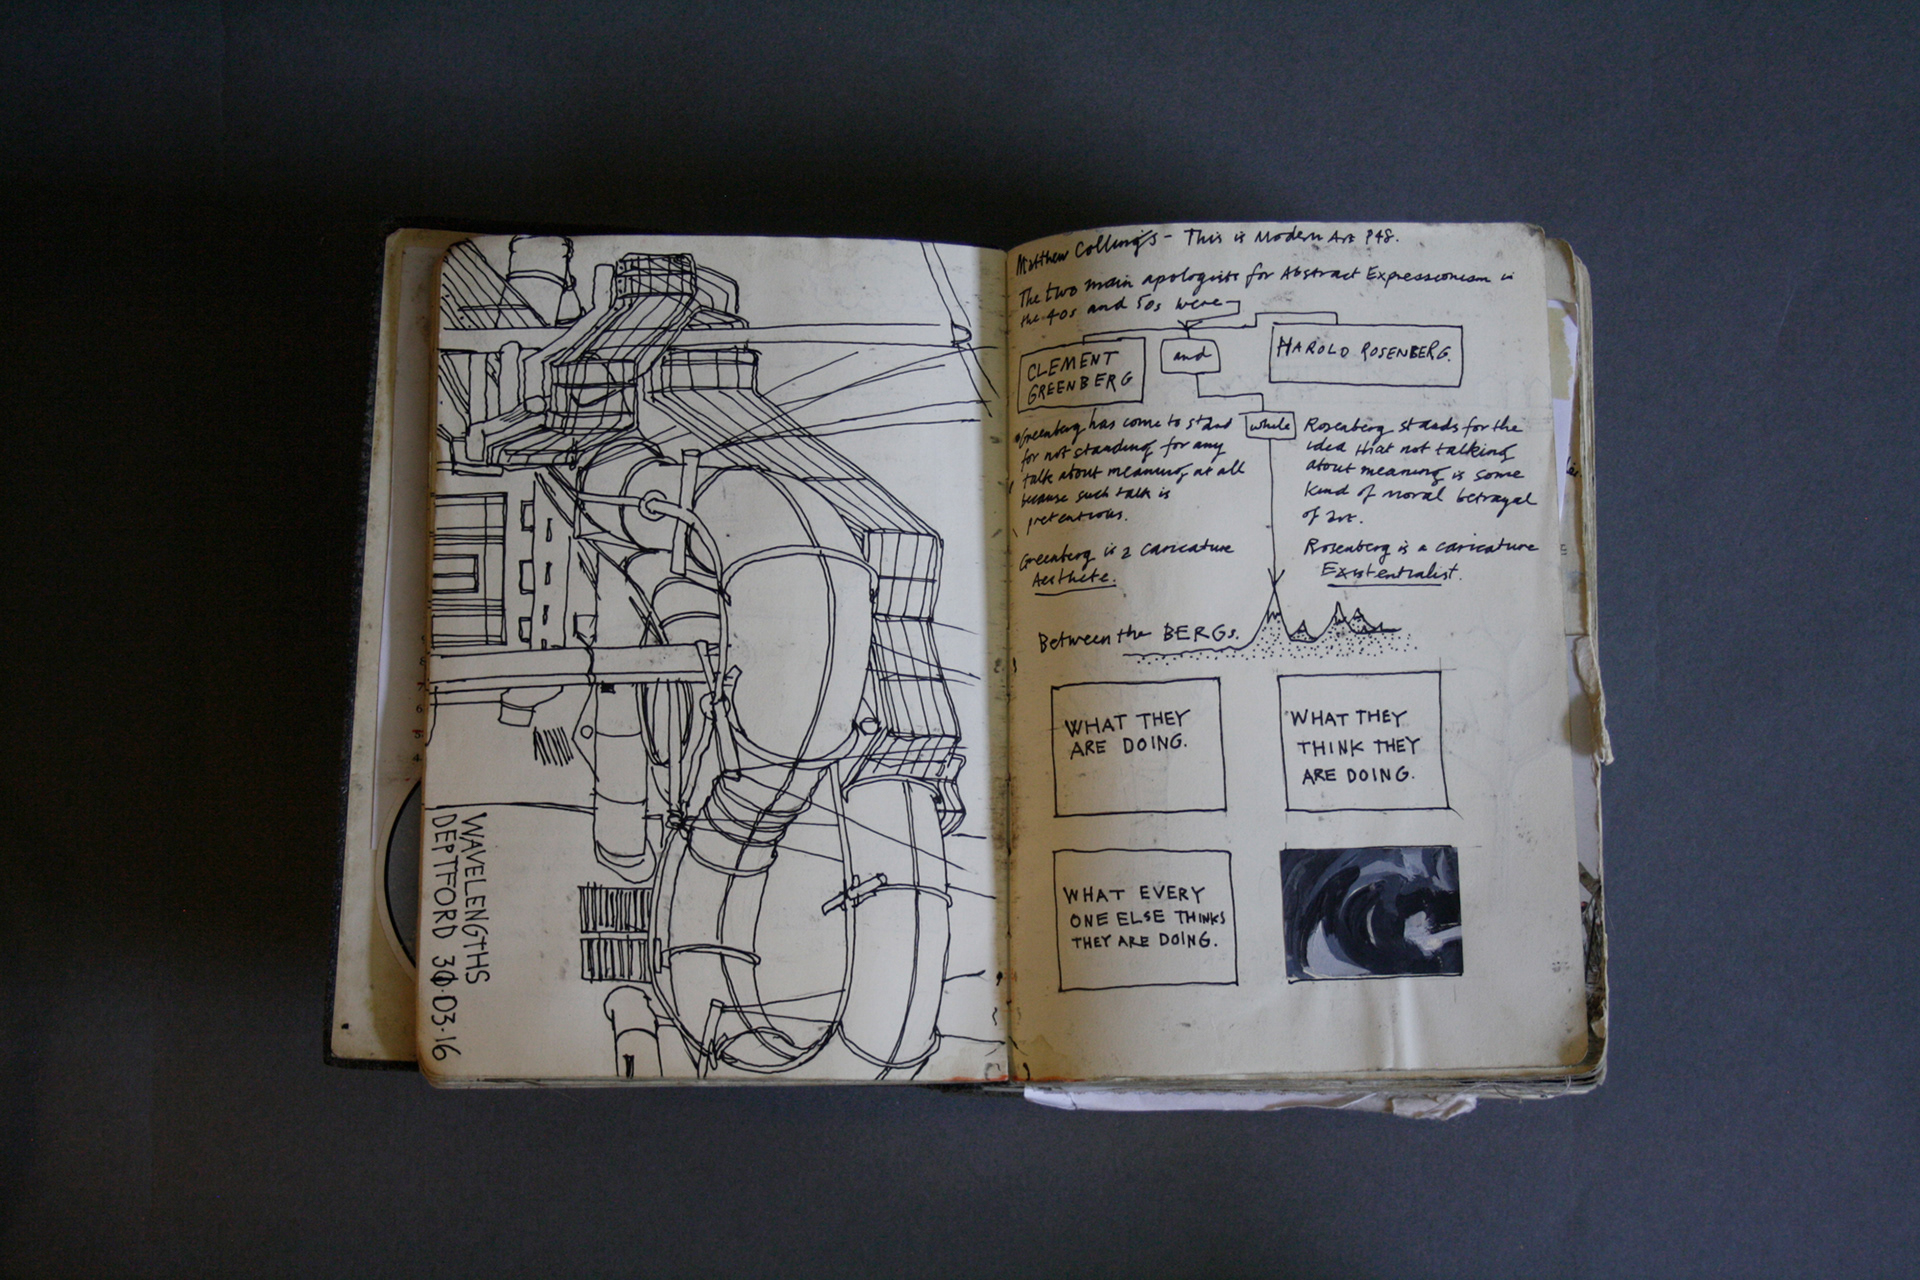 WAVELENGTHS
DEPTFORD 30.03.16
Matthew Collings - This is Modern Art P48.
The two main apologists for Abstract Expressionism in
the 40s and 50s were
CLEMENT
GREENBERG
and
HAROLD ROSENBERG.
Greenberg has come to stand
for not standing for any
talk about meaning at all
because such talk is
pretentious.
Greenberg is a caricature
Aesthete.
while
Rosenberg stands for the
idea that not talking
about meaning is some
kind of moral betrayal
of art.
Rosenberg is a caricature
Existentialist.
Between the BERGS.
WHAT THEY
ARE DOING.
WHAT THEY
THINK THEY
ARE DOING.
WHAT EVERY
ONE ELSE THINKS
THEY ARE DOING.